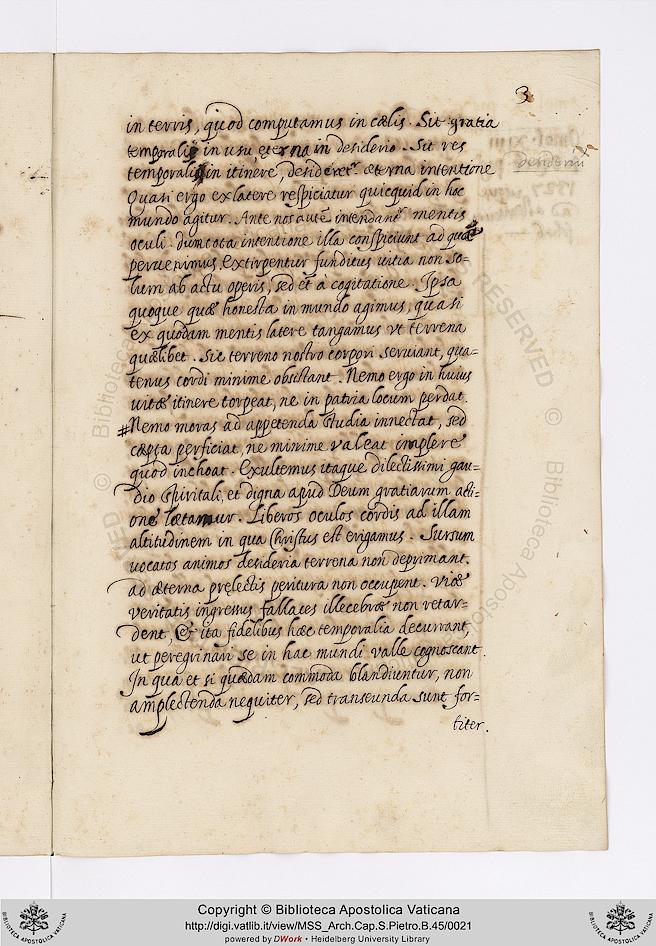 3
in terris, quod computamus in cælis. Sit gratia
temporalis in usu, ęterna in desiderio. Sit res
temporalis in itinere, desideret.ʳ æterna intentione
Quasi ergo ex latere respiciatur quicquid in hoc
mundo agitur. Ante nos autē intendant mentis
oculi. dum tota intentione illa conspiciunt ad quæ
peruenimus. Extirpentur funditus uitia non so=
lum ab actu operis, sed et a cogitatione. Ipsa
quoque quæ honesta in mundo agimus, quasi
ex quodam mentis latere tangamus vt terrena
quælibet. Sic terreno nostro corpori seruiant, qua=
tenus cordi minime obsistant. Nemo ergo in huius
uitæ itinere torpeat, ne in patria locum perdat.
# Nemo moras ad appetenda studia innectat, sed
cæpta perficiat, ne minime valeat implere
quod inchoat. Exultemus itaque dilectissimi gau=
dio spiritali, et digna apud Deum gratiarum acti=
one lætamur. Liberos oculos cordis ad illam
altitudinem in qua Christus est erigamus. Sursum
uocatos animos desideria terrena non deprimant.
ad æterna prelectis peritura non occupent. Viæ
veritatis ingressus fallaces illecebræ non retar=
dent, & ita fidelibus hæc temporalia decurrant,
ut peregrinari se in hac mundi valle cognoscant.
In qua et si quædam commoda blandiuntur, non
amplectenda nequiter, sed transeunda sunt for=
titer.
Copyright © Biblioteca Apostolica Vaticana
http://digi.vatlib.it/view/MSS_Arch.Cap.S.Pietro.B.45/0021
powered by DWork • Heidelberg University Library